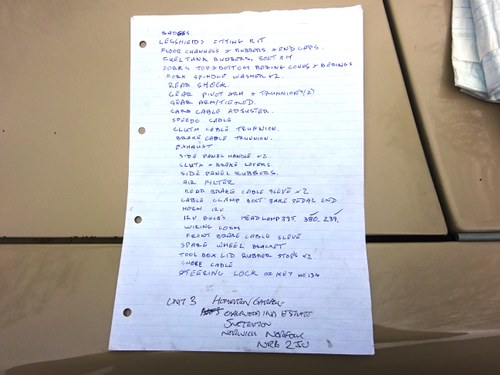 BADGES
LEGSHIELDS FITTING KIT
FLOOR CHANNELS & RUBBERS & END CAPS.
FUEL TANK RUBBERS, BOLT KIT
FORKS TOP & BOTTOM BEARING CONES & BEARINGS
FORK SPINDLE WASHER X2.
REAR SHOCK.
GEAR PIVOT ARM & TRUNNIONS (2)
GEAR ARM/TIE ROD.
CARB CABLE ADJUSTER.
SPEEDO CABLE
CLUTCH CABLE TRUNNION.
BRAKE CABLE TRUNNION.
EXHAUST
SIDE PANEL HANDLE X2.
CLUTCH & BRAKE LEVERS.
SIDE PANEL RUBBERS.
AIR FILTER
REAR BRAKE CABLE SLEVE X2
CABLE CLAMP BOLT BAKE PEDAL END
HORN 12V
12V BULBS HEADLAMP 395, 380, 239,
WIRING LOOM
FRONT BRAKE CABLE SLEVE
SPARE WHEEL BRACKET
TOOL BOX LID RUBBER STOPS X2
CHOKE CABLE
STEERING LOCK OR KEY
UNIT 3 GARAGE
IND ESTATE
SNETTERTON
NORWICH NORFOLK
NR16 2JU